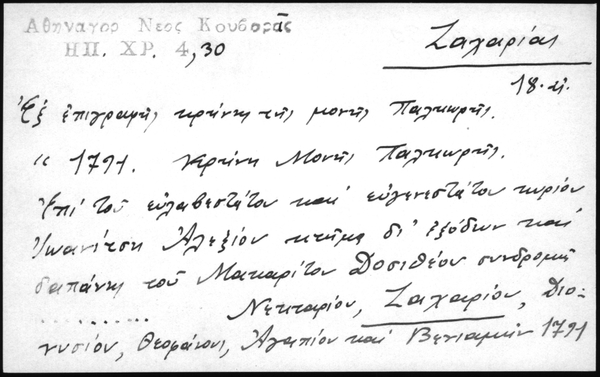 Αθηναγορ Νεος Κουβαρᾶς
ΗΠ. ΧΡ. 4,30
Ζαχαρίας
18. αι.
Ἐξ ἐπιγραφῆς κρήνης τῆς μονῆς Παλιωρῆς.
" 1791. Κρήνη Μονῆς Παλιωρῆς.
Ἐπὶ τοῦ εὐλαβεστάτου καὶ εὐγενεστάτου κυρίου
Ἰωανίτση Ἀλεξίου κτῆμα δι' ἐξόδων καὶ
δαπάνης τοῦ Μακαρίτου Δοσιθέου συνδρομῇ
.......... Νεκταρίου, Ζαχαρίου, Διο-
νυσίου, Θεοφάνους, Ἀγαπίου καὶ Βενιαμὶν 1791